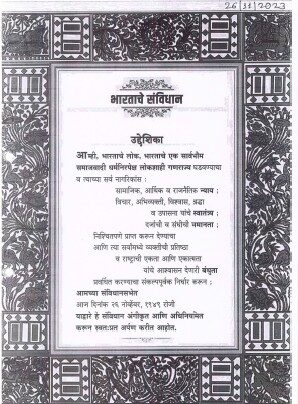 26/11/2023
भारताचे संविधान
उद्देशिका
आम्ही, भारताचे लोक, भारताचे एक सार्वभौम
समाजवादी धर्मनिरपेक्ष लोकशाही गणराज्य घडवण्याचा
व त्याच्या सर्व नागरिकांस :
सामाजिक, आर्थिक व राजनैतिक न्याय ;
विचार, अभिव्यक्ती, विश्वास, श्रद्धा
व उपासना यांचे स्वातंत्र्य ;
दर्जाची व संधीची समानता ;
निश्चितपणे प्राप्त करून देण्याचा
आणि त्या सर्वांमध्ये व्यक्तीची प्रतिष्ठा
व राष्ट्राची एकता आणि एकात्मता
यांचे आश्वासन देणारी बंधुता
प्रवर्धित करण्याचा संकल्पपूर्वक निर्धार करून ;
आमच्या संविधानसभेत
आज दिनांक २६ नोव्हेंबर, १९४९ रोजी
याद्वारे हे संविधान अंगीकृत आणि अधिनियमित
करून स्वतःप्रत अर्पण करीत आहोत.